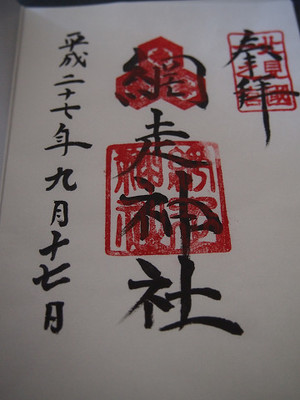 奉拝
網走神社
平成二十七年九月十七日